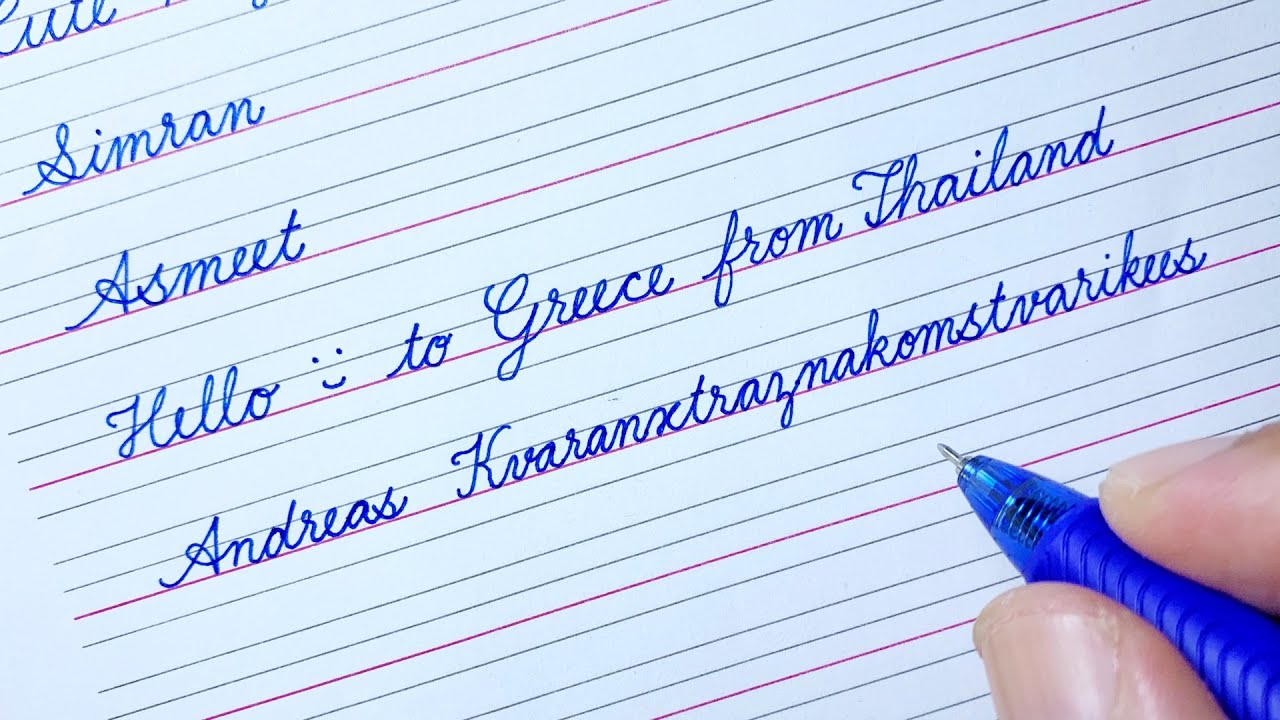 Cute
Simran
Asmeet
Hello :) to Greece from Thailand
Andreas Kvaranxtraznakomstvarikees